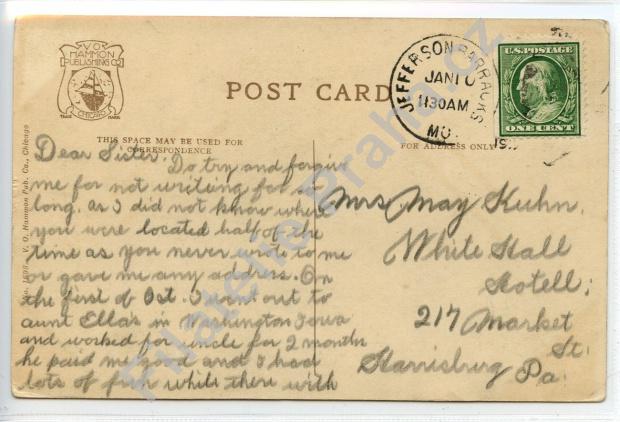 V.O.
HAMMON
PUBLISHING CO.
CHICAGO
TRADE MARK
POST CARD
THIS SPACE MAY BE USED FOR
CORRESPONDENCE
FOR ADDRESS ONLY
JEFFERSON BARRACKS
JAN 10
11 30 AM
MO.
U.S. POSTAGE
ONE CENT
No. 1690. V. O. Hammon Pub. Co., Chicago
Dear Sister. Do try and forgive
me for not writing for so
long, as I did not know where
you were located half of the
time as you never wrote to me
or gave me any address. On
the first of Oct. I went out to
aunt Ella's in Washington Iowa
and worked for uncle for 2 months
he paid me good and I had
lots of fun while there with
Mrs May Kuhn.
White Hall
Hotell;
217 Market
St.
Harrisburg Pa.
Filatelie-Praha.cz